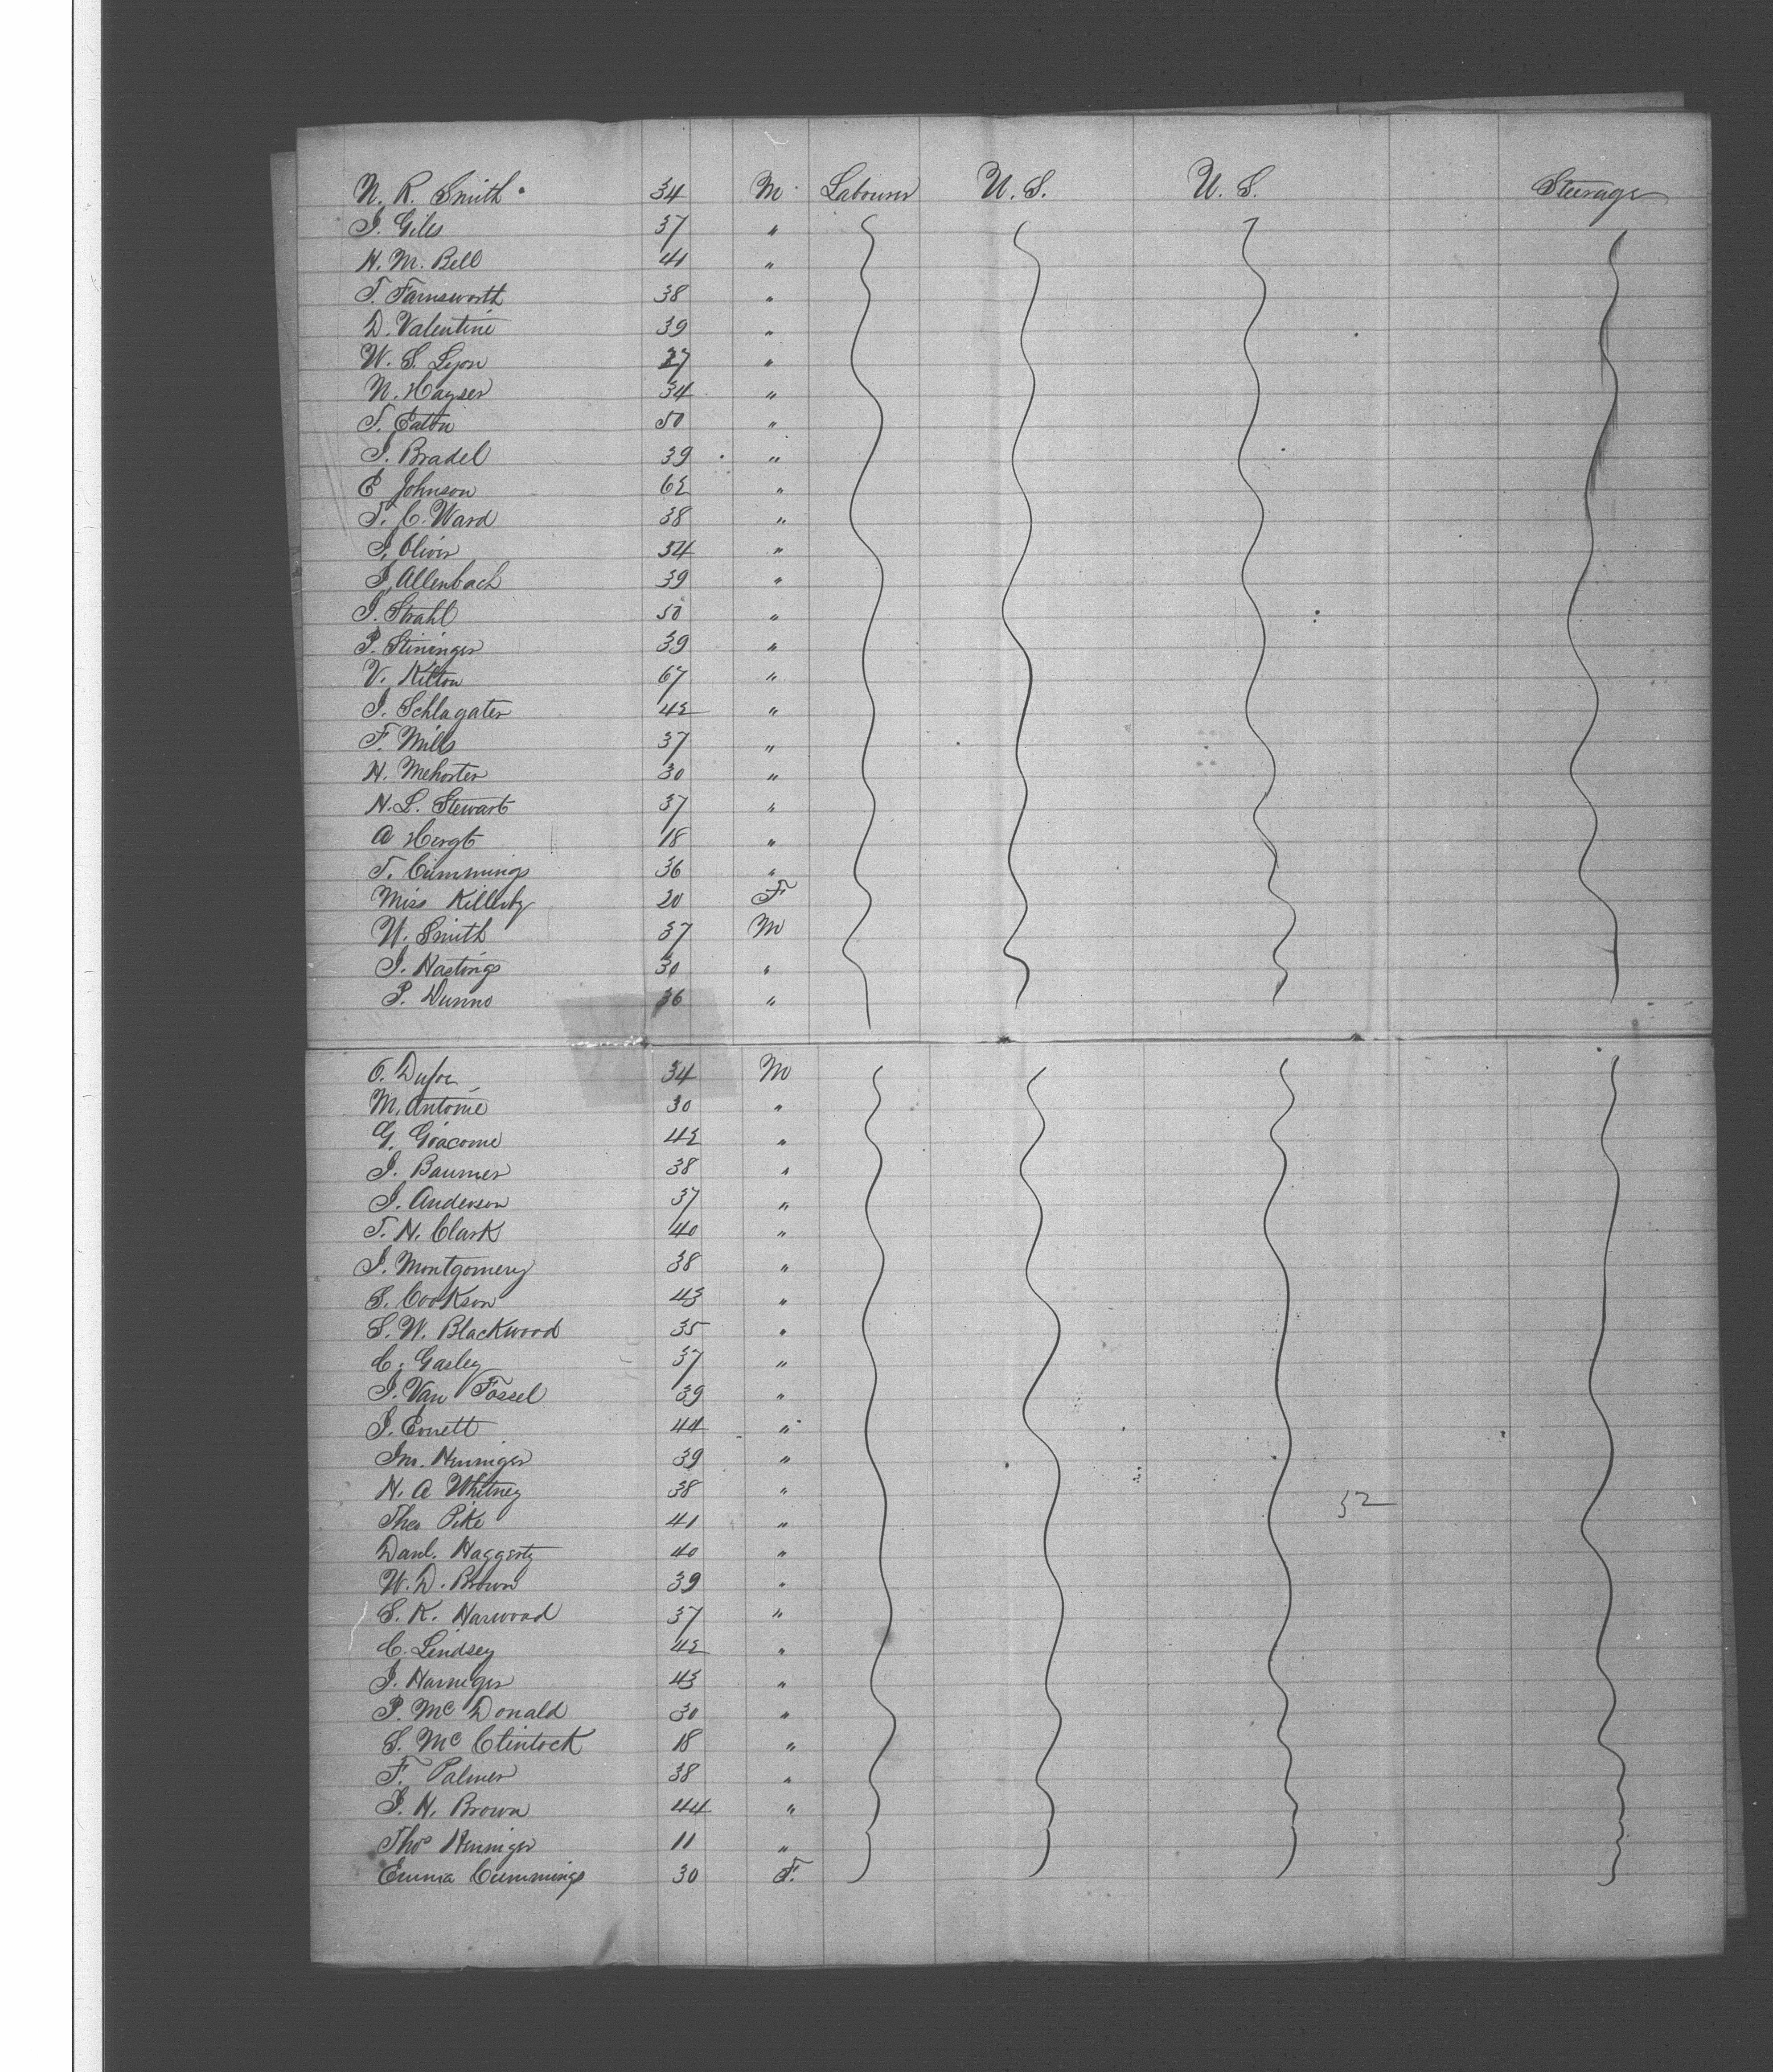 N. R. Smith 34 M Labourer U. S. U. S. Steerage
J. Giles 37 "
H. M. Bell 41 "
T. Farnsworth 38 "
D. Valentine 39 "
W. S. Lyon 27 "
N. Hayser 34 "
T. Eaton 50 "
J. Bradel 39 "
E Johnson 62 "
T. C. Ward 38 "
J. Oliver 34 "
J. Allenbach 39 "
J. Strahl 50 "
P. Steininger 39 "
V. Kilton 67 "
J. Schlagater 42 "
F. Mills 37 "
H. Mehorter 30 "
N. L. Stewart 37 "
A Hergt 18 "
T. Cummings 36 "
Miss Killerby 20 F
W. Smith 37 M
J. Hastings 30 "
P. Dunno 36 "
O. 34 M
M. Antoine 30 "
G. Giacome 42 "
J. Baumer 38 "
J. Anderson 37 "
T. H. Clark 40 "
J. Montgomery 38 "
S. Cookson 43 "
S. W. Blackwood 35 "
C. Gasley 37 "
J. Van Fossel 39 "
J. Everett 44 "
Jno. Henniger 39 "
H. A Whitney 38 "
32
Theo Pike 41 "
Danl. Haggerty 40 "
W. D. Brown 39 "
S. K. Harwood 37 "
C. Lindsey 42 "
J. Harneger 43 "
P. Mc Donald 30 "
S. Mc Clintock 18 "
F. Palmer 38 "
J. H. Brown 44 "
Thos Henniger 11 "
Emma Cummings 30 F.